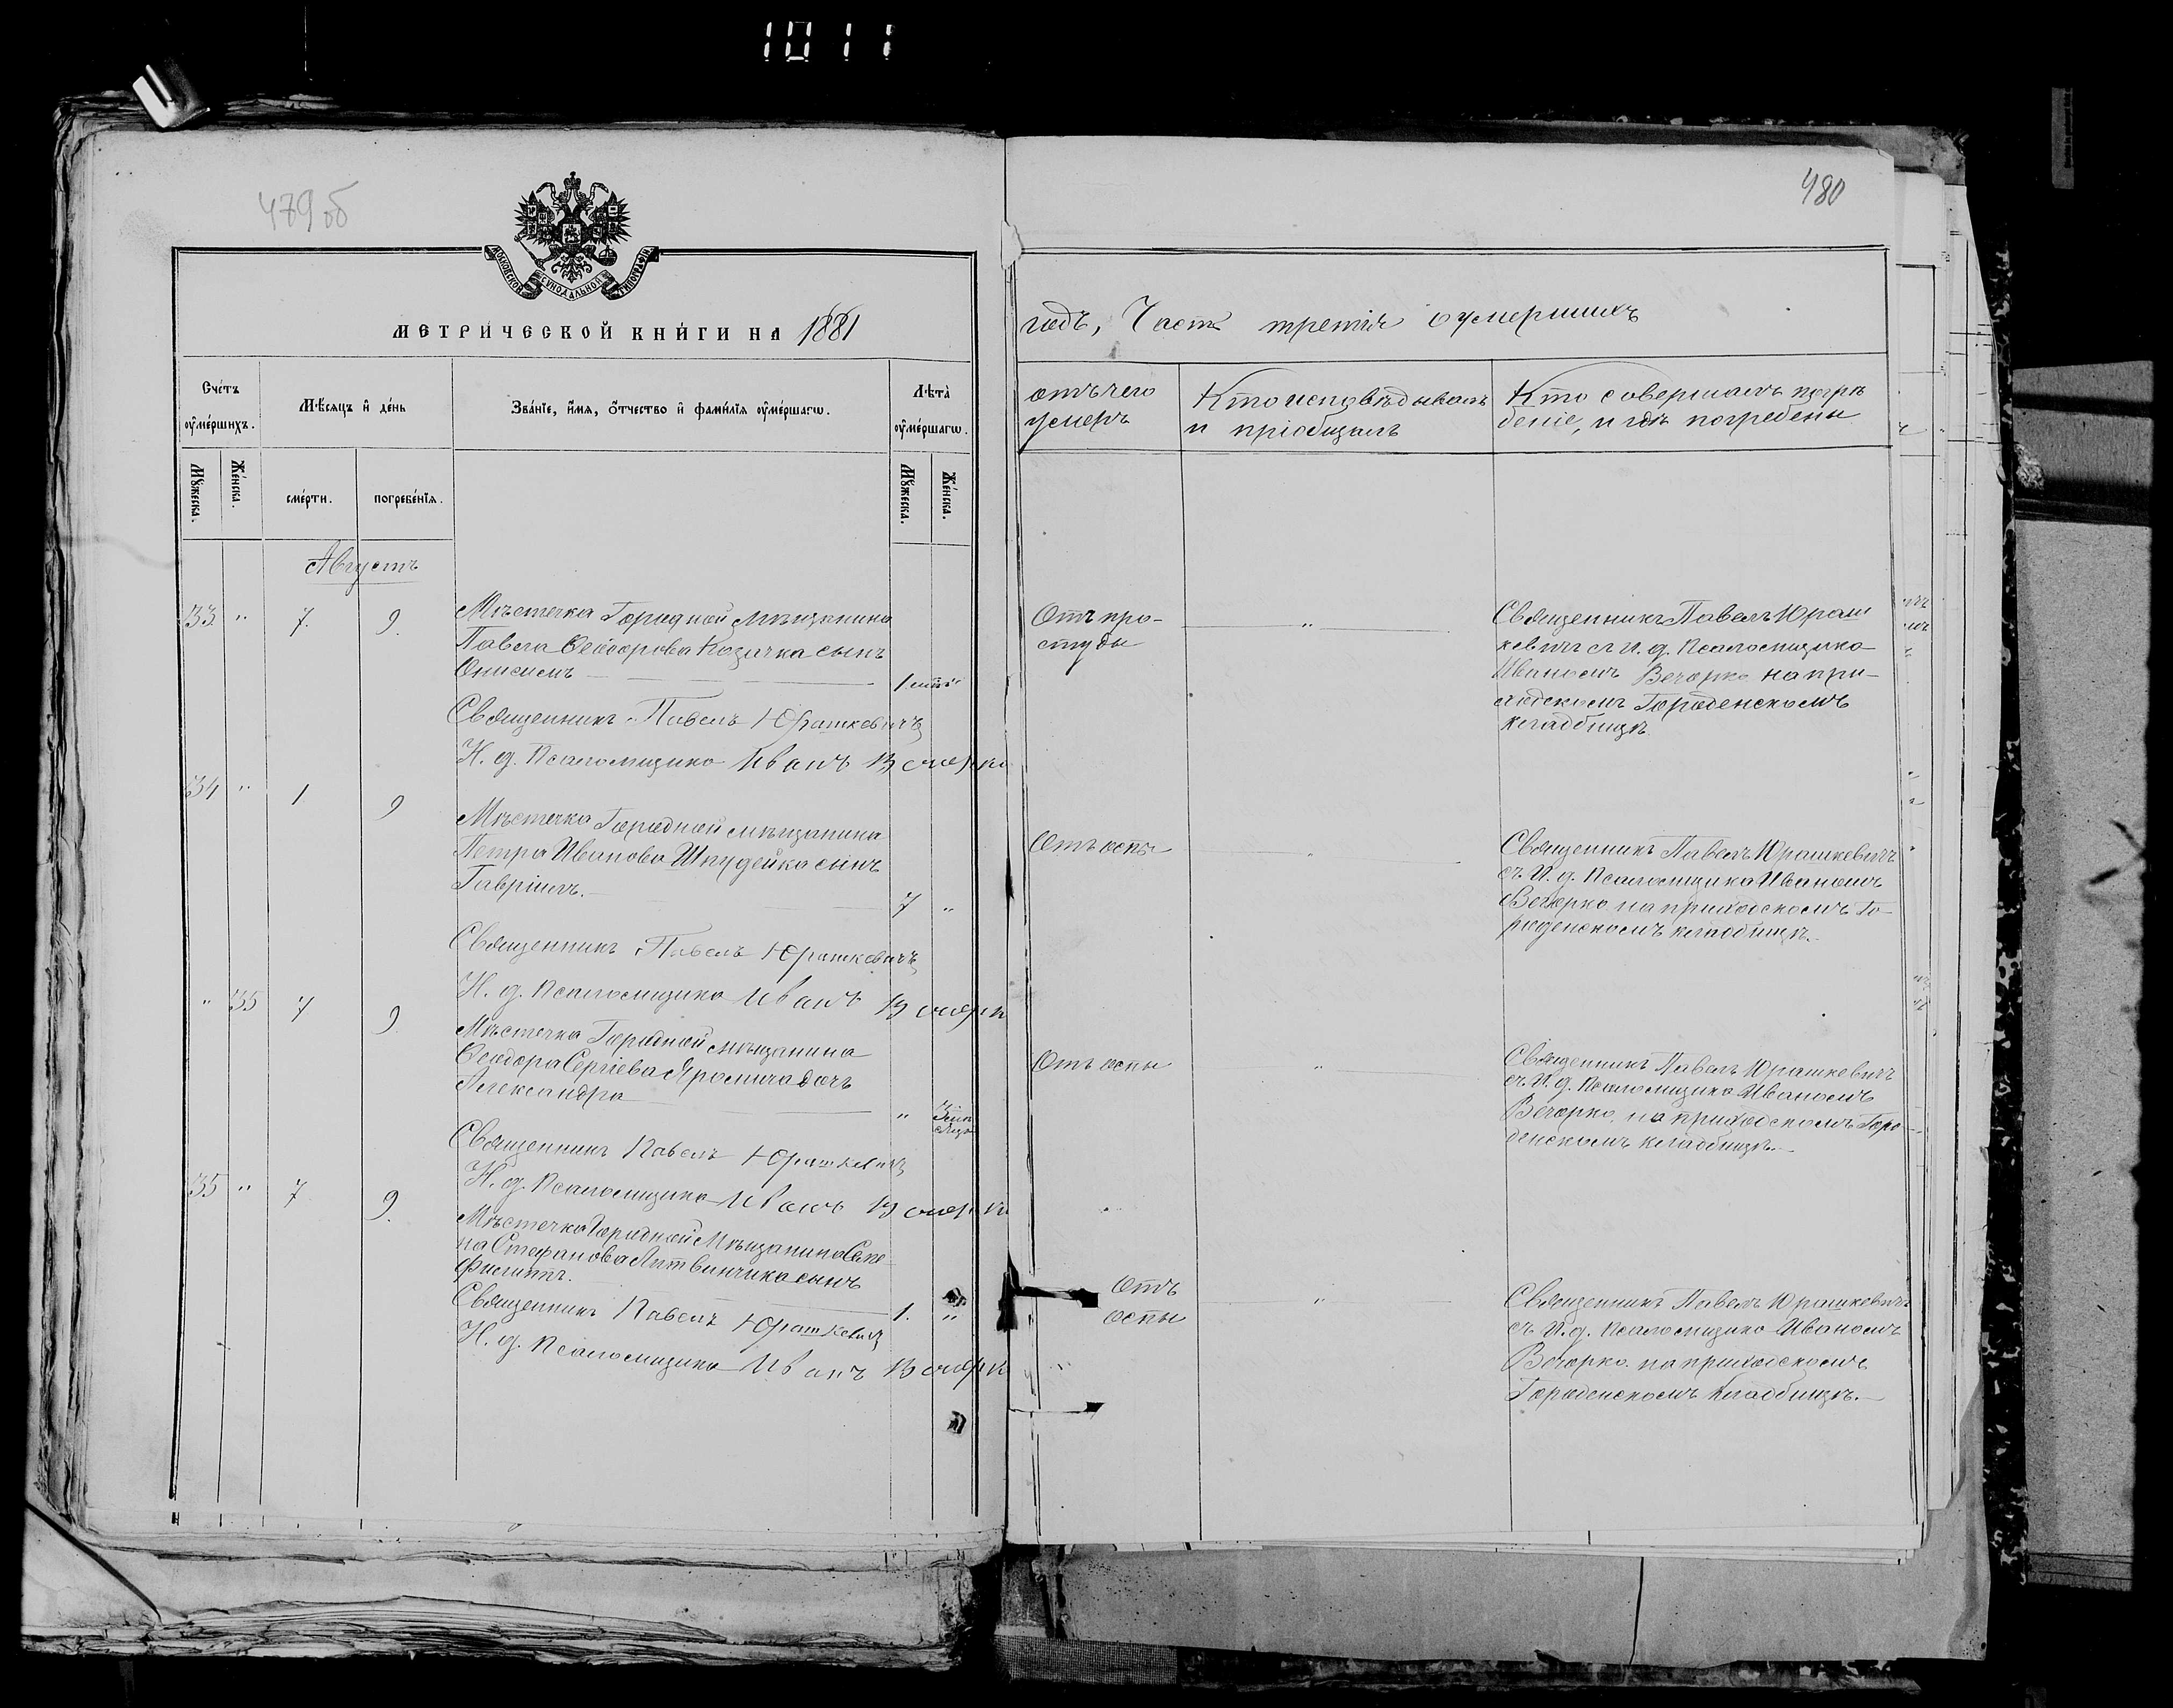 1011
479 об
480
МОСКОВСКОЙ СѴНОДАЛЬНОЙ ТИПОГРАФІИ
МЕТРИЧЕСКОЙ КНИГИ НА 1881
годъ, Часть третія о умершихъ
Счетъ оумершихъ.
Мѣсяцъ и день
Званіе, имя, отчество и фамилія оумершагѡ.
Лѣта оумершагѡ.
отъ чего умеръ
Кто исповѣдывалъ и пріобщалъ
Кто совершалъ погребеніе, и гдѣ погребены
Мужеска.
Женска.
смерти.
погребенія.
Мужеска.
Женска.
Августъ
33 " 7. 9.
Мѣстечка Городной мѣщанина
Павла Ѳеодорова Козачка сынъ
Онисимъ
Отъ простуды
"
Священникъ Павелъ Юраш
кевичъ с И. д. Псаломщика
Иваномъ Вечорко на при-
ходскомъ Городенскомъ
кладбищѣ
Священникъ Павелъ Юрашкевичъ
И. д. Псаломщика Иванъ Вечорко
34 " 1 9
Мѣстечка Городной мѣщанина
Петра Иванова Шпудейко сынъ
Гавріилъ.
7 "
Отъ оспы
"
Священникъ Павелъ Юрашкевичъ
съ И. д. Псаломщика Иваномъ
Вечорко на приходскомъ Го-
роденскомъ кладбищѣ.
Священникъ Павелъ Юрашкевичъ
И. д. Псаломщика Иванъ Вечорк
" 35 7 9
Мѣстечка Городной мѣщанина
Ѳеодора Сергіева Яромича дочь
Александра
"
Отъ оспы
"
Священникъ Павелъ Юрашкевичъ
съ И. д. Псаломщика Иваномъ
Вечорко, на приходскомъ Горо
денскомъ кладбищѣ.
Священникъ Павелъ Юрашкевичъ
И. д. Псаломщика Иванъ Вечорк
35 " 7 9.
Мѣстечка Городной Мѣщанина
на Стефанова Литвинчика сынъ
Филиппъ.
1. "
Отъ
оспы
"
Священникъ Павелъ Юрашкевичъ
съ И. д. Псаломщика Иваномъ
Вечорко на приходскомъ
Городенскомъ кладбищѣ.
Священникъ Павелъ Юрашкевичъ
И. д. Псаломщика Иванъ Вечорк